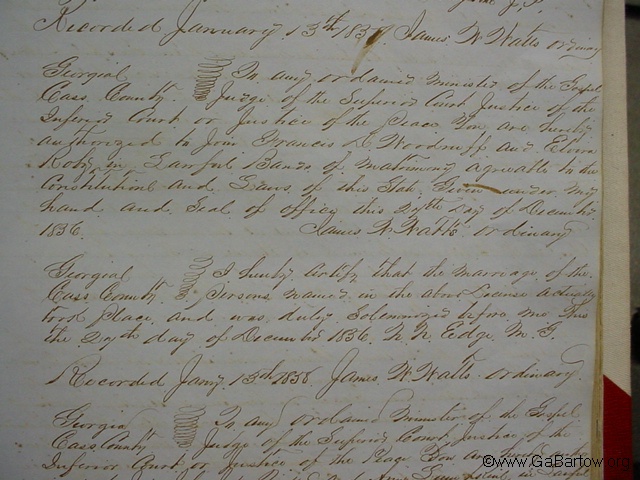 Recorded January 13th 1857 James W Watts ordinary
Georgia To any ordained Minister of the Gospel
Cass County. Judge of the Superior Court Justice of the
Inferior Court or Justice of the Peace You are hereby
authorized to Join Francis L Woodruff and
in Lawful Bands of Matrimony agreeable to the
Constitution and Laws of this State. Given under my
hand and Seal of office this Day of December
1856. James W. Watts ordinary
Georgia I hereby Certify that the Marriage of the
Cass County Persons named in the above License actually
took Place and was duly Solemnized before me this
the day of December 1856. Edge M. G.
Recorded Jany 13th 1858. James W. Watts ordinary.
Georgia To any ordained Minister of the Gospel
Cass County Judge of the Superior Court, Justice of the
Inferior Court or Justice of the Peace You are
©www.GaBartow.org